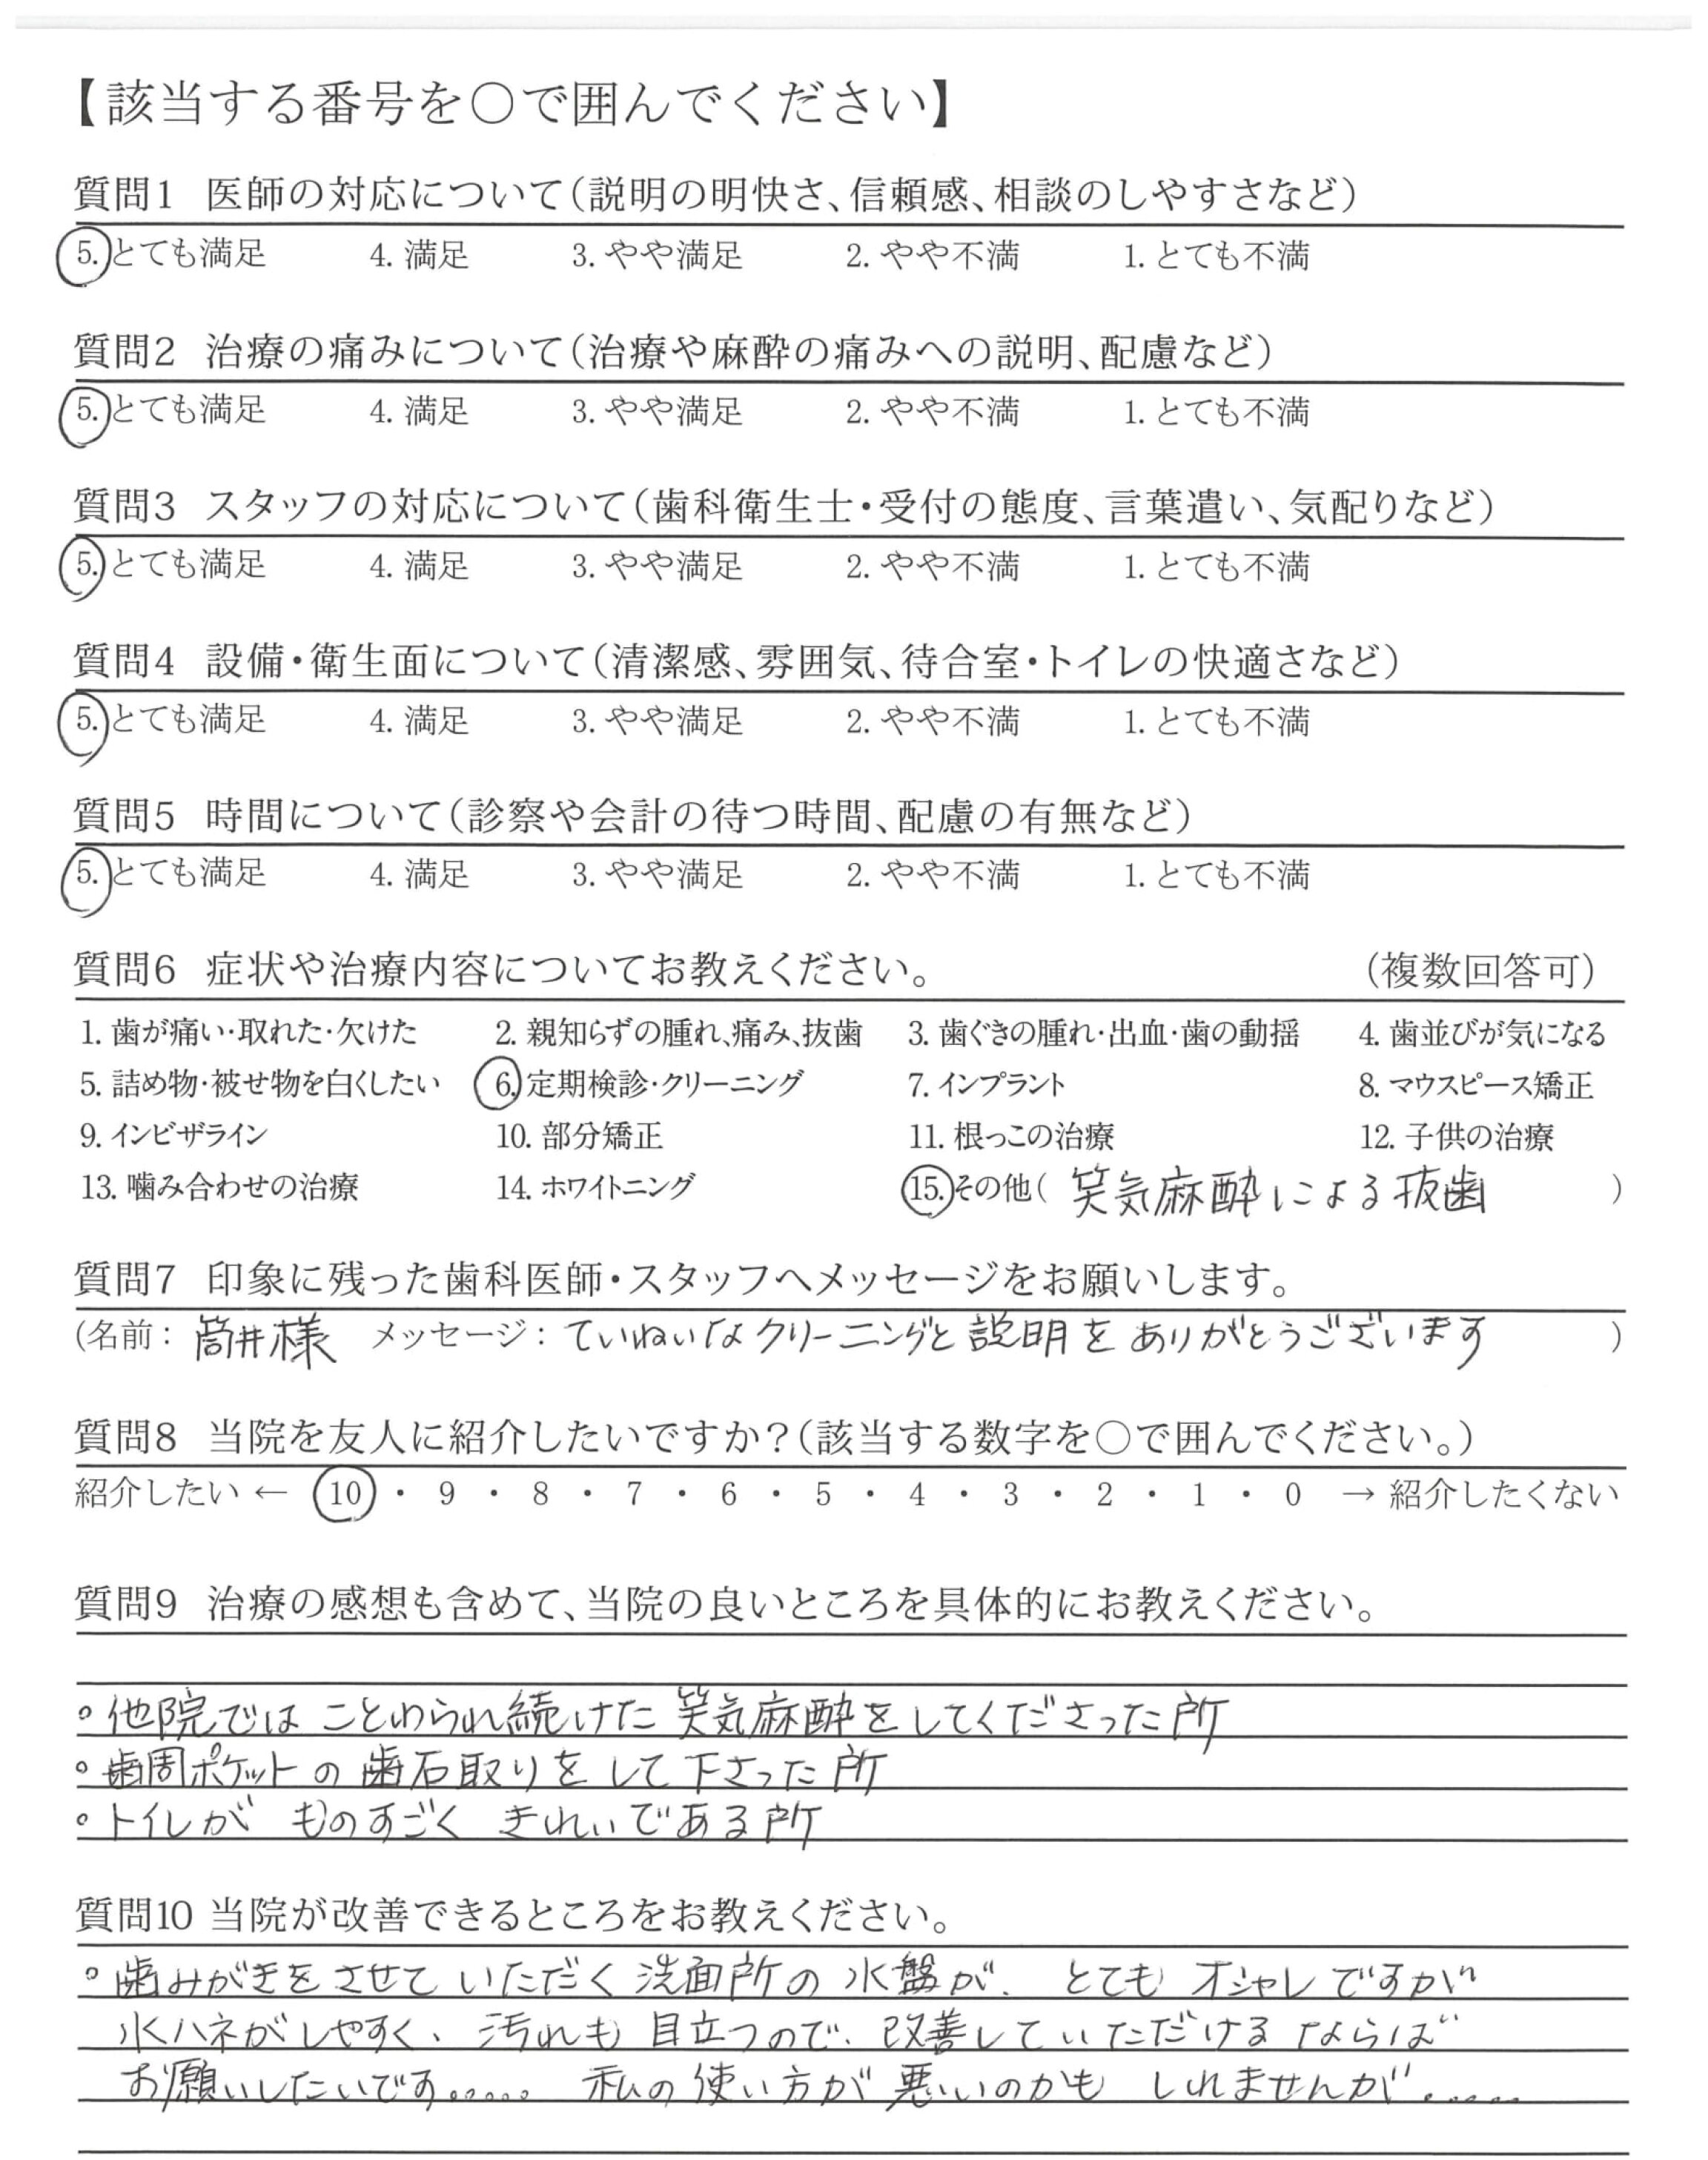 【該当する番号を〇で囲んでください】
質問1 医師の対応について(説明の明快さ、信頼感、相談のしやすさなど)
5. とても満足 4. 満足 3. やや満足 2. やや不満 1. とても不満
質問2 治療の痛みについて(治療や麻酔の痛みへの説明、配慮など)
5. とても満足 4. 満足 3. やや満足 2. やや不満 1. とても不満
質問3 スタッフの対応について(歯科衛生士・受付の態度、言葉遣い、気配りなど)
5. とても満足 4. 満足 3. やや満足 2. やや不満 1. とても不満
質問4 設備・衛生面について(清潔感、雰囲気、待合室・トイレの快適さなど)
5. とても満足 4. 満足 3. やや満足 2. やや不満 1. とても不満
質問5 時間について(診察や会計の待つ時間、配慮の有無など)
5. とても満足 4. 満足 3. やや満足 2. やや不満 1. とても不満
質問6 症状や治療内容についてお教えください。 (複数回答可)
1. 歯が痛い・取れた・欠けた 2. 親知らずの腫れ、痛み、抜歯 3. 歯ぐきの腫れ・出血・歯の動揺 4. 歯並びが気になる
5. 詰め物・被せ物を白くしたい 6. 定期検診・クリーニング 7. インプラント 8. マウスピース矯正
9. インビザライン 10. 部分矯正 11. 根っこの治療 12. 子供の治療
13. 噛み合わせの治療 14. ホワイトニング 15. その他( 笑気麻酔による抜歯 )
質問7 印象に残った歯科医師・スタッフへメッセージをお願いします。
(名前: 筒井様 メッセージ: ていねいなクリーニングと説明をありがとうございます )
質問8 当院を友人に紹介したいですか?(該当する数字を〇で囲んでください。)
紹介したい ← 10 ・ 9 ・ 8 ・ 7 ・ 6 ・ 5 ・ 4 ・ 3 ・ 2 ・ 1 ・ 0 → 紹介したくない
質問9 治療の感想も含めて、当院の良いところを具体的にお教えください。
。他院では ことわられ続けた 笑気麻酔をしてくださった所
。歯周ポケットの歯石取りをして下さった所
。トイレが ものすごく きれいである所
質問10 当院が改善できるところをお教えください。
。歯みがきをさせていただく洗面所の水盤が、とてもオシャレですが
水ハネがしやすく、汚れも目立つので、改善していただけるならば
お願いしたいです..... 私の使い方が悪いのかも しれませんが.....